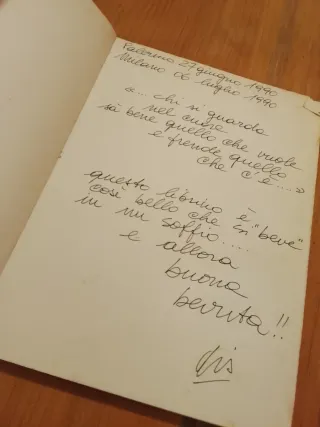 Palermo 27 giugno 1990
Milano 06 luglio 1990
"... chi si guarda
nel cuore
sa bene quello che vuole
e prende quello
che c'è...."
questo libricino è
così bello che si "beve"
in un soffio....
e allora
buona
bevuta!!